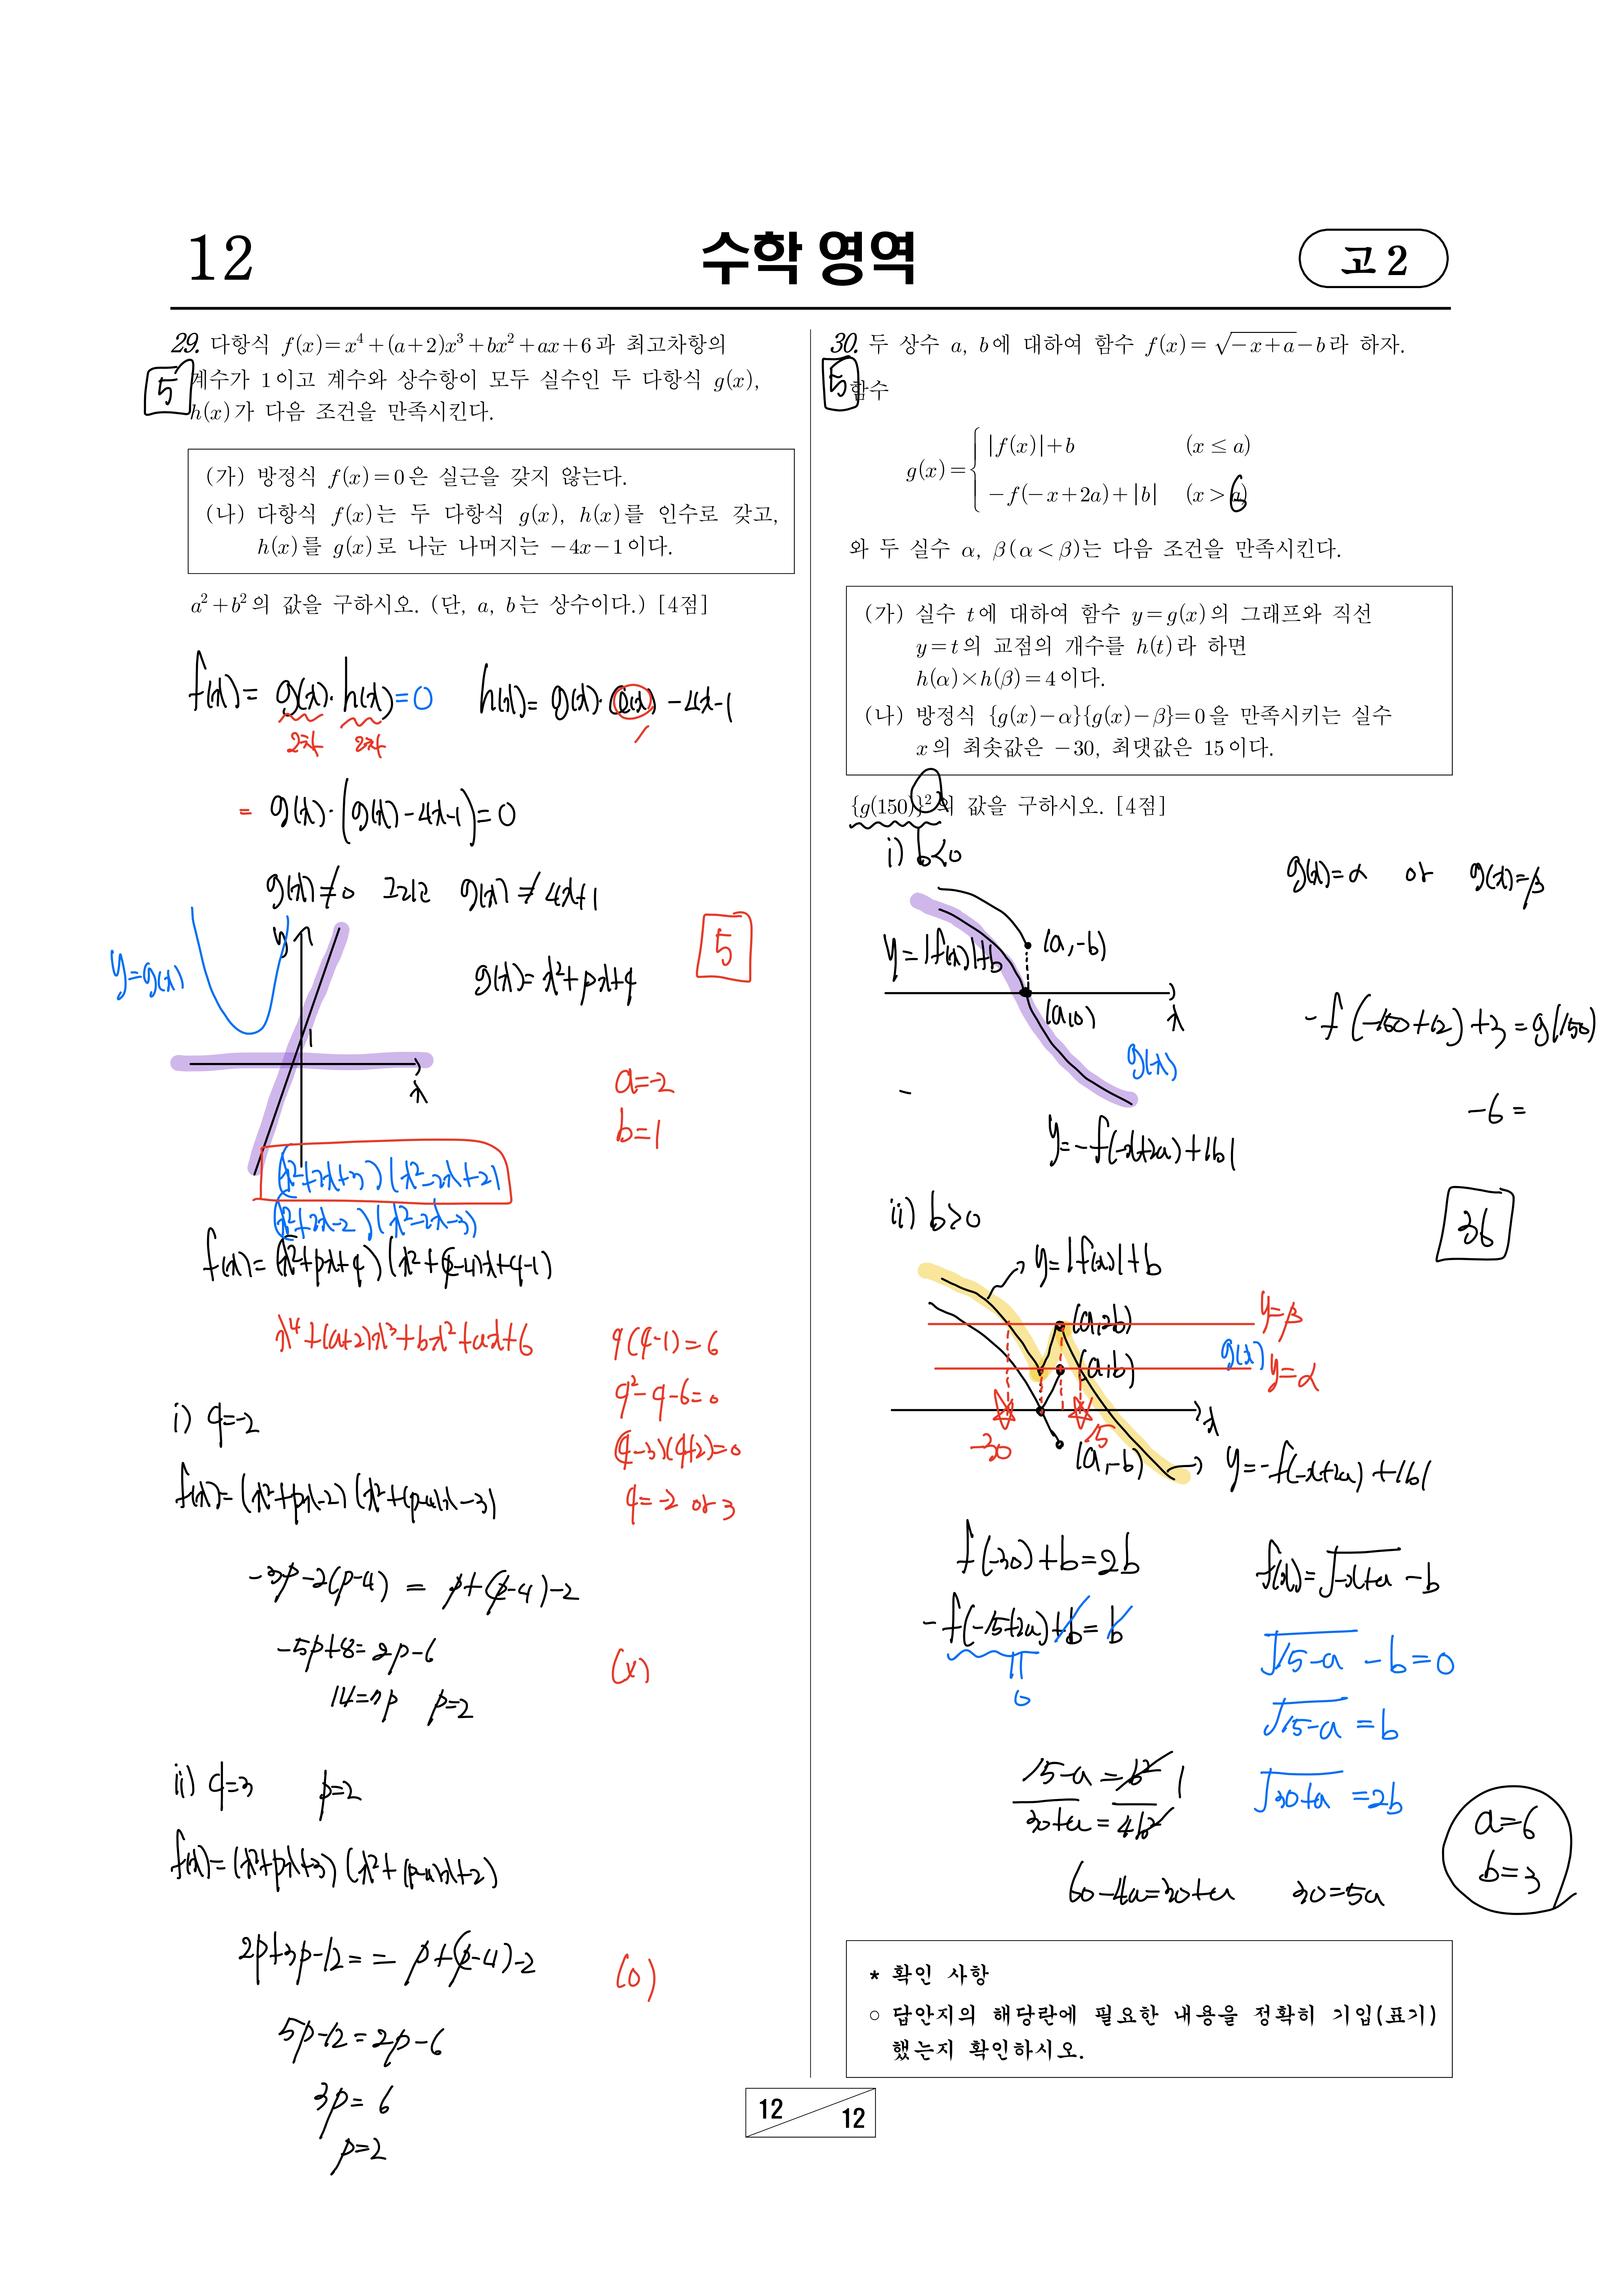 12
수학 영역
고 2
29. 다항식 f(x)=x⁴+(a+2)x³+bx²+ax+6과 최고차항의
계수가 1이고 계수와 상수항이 모두 실수인 두 다항식 g(x),
h(x)가 다음 조건을 만족시킨다.
5
(가) 방정식 f(x)=0은 실근을 갖지 않는다.
(나) 다항식 f(x)는 두 다항식 g(x), h(x)를 인수로 갖고,
h(x)를 g(x)로 나눈 나머지는 −4x−1이다.
a²+b²의 값을 구하시오. (단, a, b는 상수이다.) [4점]
f(x)= g(x)·h(x)=0
2차 2차
h(x)= g(x)·Q(x) -4x-1
1
= g(x)·(g(x)-4x-1)=0
g(x)≠0 그리고 g(x)≠4x+1
5
y
y=g(x)
g(x)=x²+px+q
1
x
a=-2
b=1
(x²+2x+3)(x²-2x+2)
(x²+2x-2)(x²-2x-3)
f(x)=(x²+px+q)(x²+(p-4)x+q-1)
x⁴+(a+2)x³+bx²+ax+6
q(q-1)=6
q²-q-6=0
(q-3)(q+2)=0
q=-2 or 3
i) q=-2
f(x)=(x²+px-2)(x²+(p-4)x-3)
-3p-2(p-4) = p+(p-4)-2
-5p+8=2p-6
(x)
14=7p p=2
ii) q=3 p=2
f(x)=(x²+px+3)(x²+(p-4)x+2)
2p+3p-12= = p+(p-4)-2
(o)
5p-12=2p-6
3p=6
p=2
30. 두 상수 a, b에 대하여 함수 f(x)=√−x+a−b라 하자.
5
함수
g(x)={ |f(x)|+b (x≤a)
−f(−x+2a)+|b| (x>a)
6
와 두 실수 α, β(α<β)는 다음 조건을 만족시킨다.
(가) 실수 t에 대하여 함수 y=g(x)의 그래프와 직선
y=t의 교점의 개수를 h(t)라 하면
h(α)×h(β)=4이다.
(나) 방정식 {g(x)−α}{g(x)−β}=0을 만족시키는 실수
x의 최솟값은 −30, 최댓값은 15이다.
{g(150)}²의 값을 구하시오. [4점]
i) b<0
g(x)=α or g(x)=β
y=|f(x)|+b
(a,-b)
(a,0)
x
g(x)
y=-f(-x+2a)+|b|
-f(-150+12)+3=g(150)
-6=
36
ii) b>0
y=|f(x)|+b
(a,2b)
y=β
(a,b)
g(x)
y=α
x
-30
15
(a,-b)
y=-f(-x+2a)+|b|
f(-30)+b=2b
-f(-15+2a)+b=b
11
0
f(x)=√-x+a -b
√15-a -b=0
√15-a =b
√30+a =2b
15-a=b² 1
30+a=4b²
60-4a=30+a 30=5a
a=6
b=3
* 확인 사항
○ 답안지의 해당란에 필요한 내용을 정확히 기입(표기)
했는지 확인하시오.
12
12